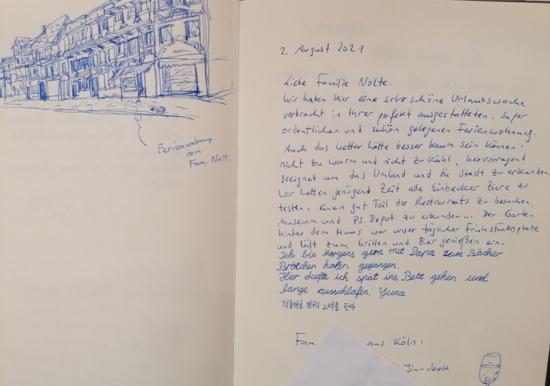 Ferienwohnung
von
Fam. Nolt.
2. August 2021
Liebe Familie Nolte.
Wir haben hier eine sehr schöne Urlaubswoche
verbracht in Ihrer perfekt ausgestatteten, super
ordentlichen und schön gelegenen Ferienwohnung.
Auch das Wetter hätte besser kaum sein können:
nicht zu warm und nicht zu kühl, hervorragend
geeignet um das Umland und die Stadt zu erkunden.
Wir hatten genügend Zeit alle Einbecker Biere zu
testen, einen gut Teil der Restaurants zu besuchen,
Museum und PS. Depot zu erkunden... Der Garten
hinter dem Haus war unser täglicher Frühstücksplatz
und lädt zum Grillen und Bier genießen ein.
Ich bin Morgens gern mit Papa zum Bäcker
Brötchen holen gegangen.
Hier durfte ich spät ins Bett gehen und
lange ausschlafen. Yuna
Fam. aus Köln: